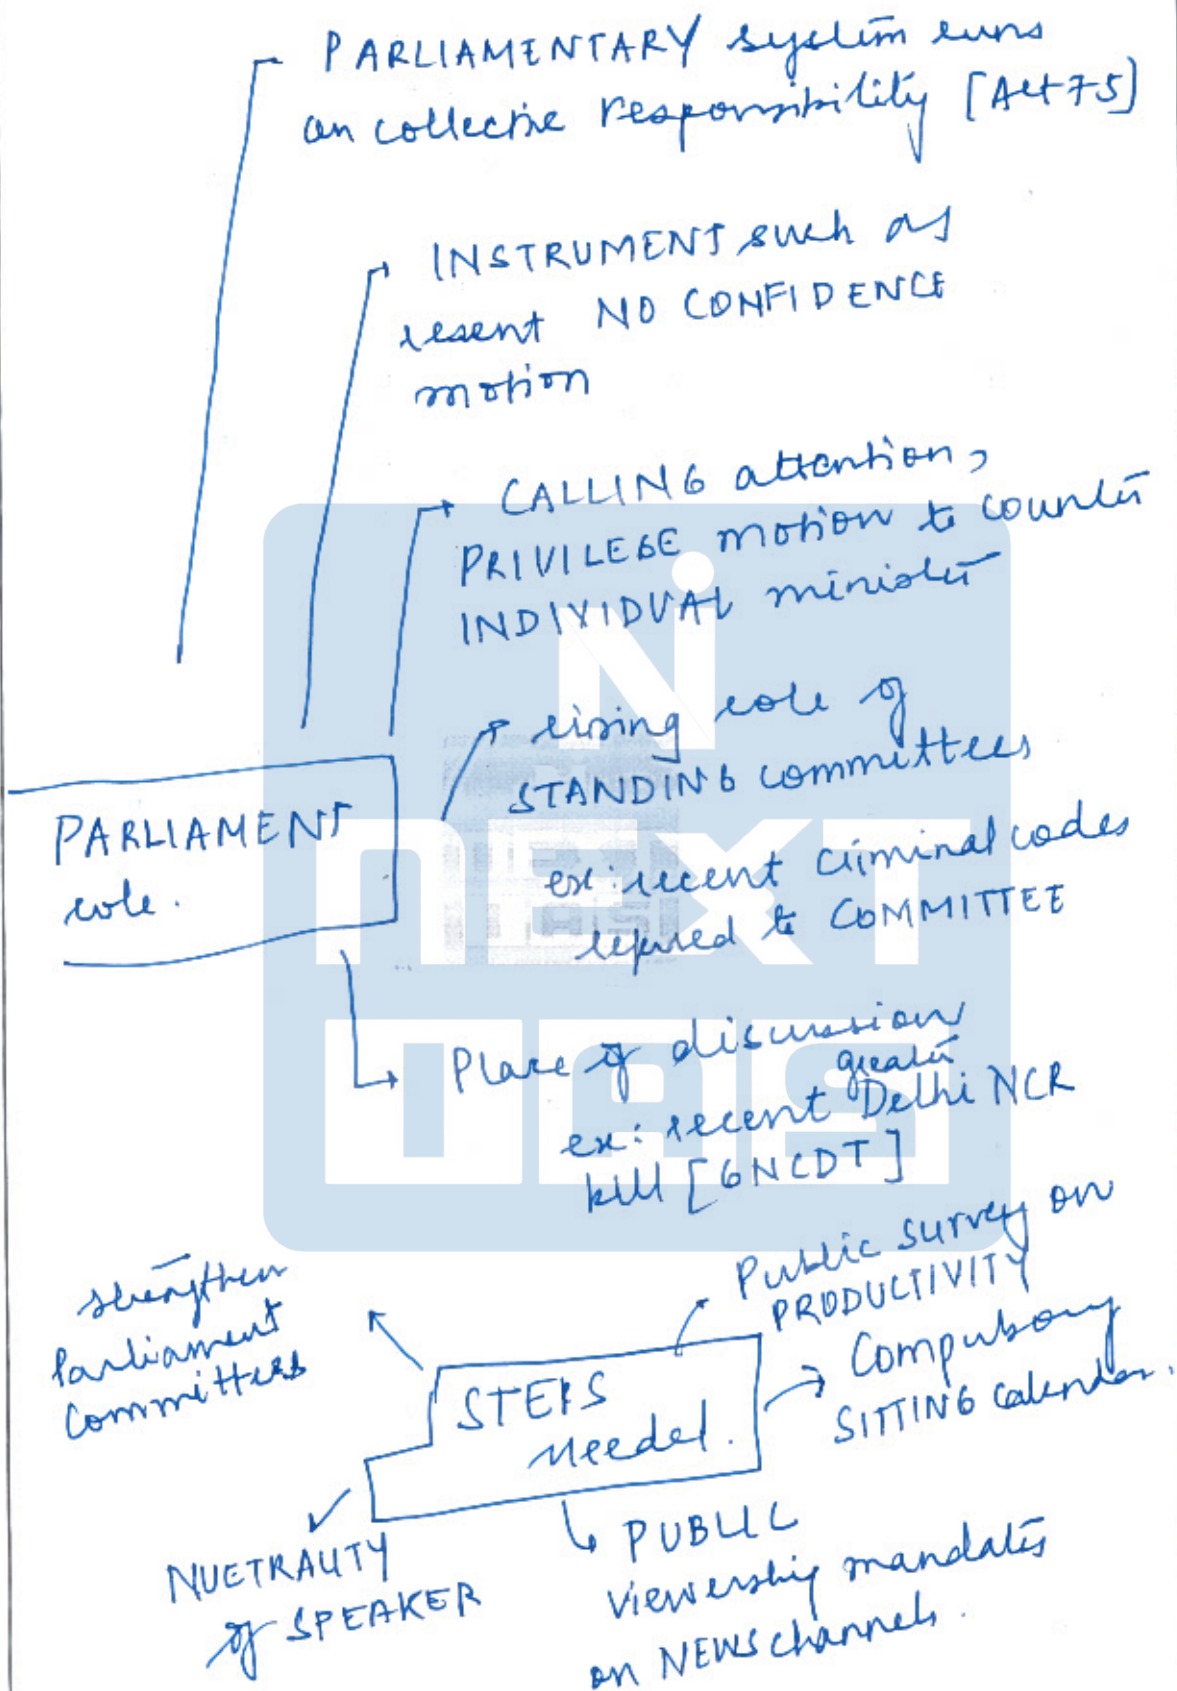 PARLIAMENTARY system runs
on collective responsibility [Art 75]
INSTRUMENT such as
recent NO CONFIDENCE
motion
CALLING attention,
PRIVILEGE motion to counter
INDIVIDUAL minister
rising role of
STANDING committees
ex: recent criminal codes
refered to COMMITTEE
PARLIAMENT
role.
Place of discussion
greater
ex: recent Delhi NCR
bill [GNCDT]
strengthen
Parliament
Committees
Public survey on
PRODUCTIVITY
Compulsory
SITTING Calendar.
STEPS
Needed.
NUETRALITY
of SPEAKER
PUBLIC
viewership mandates
on NEWS channels.
NEXT
IAS